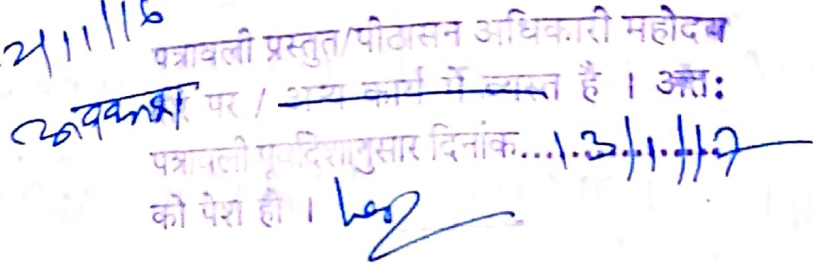 21/11/16
पत्रावली प्रस्तुत/पीठासन अधिकारी महोदय
अवकाश पर / अन्य कार्य में व्यस्त है । अत:
पत्रावली पूर्वदिशानुसार दिनांक...13/1/17
को पेश हो ।